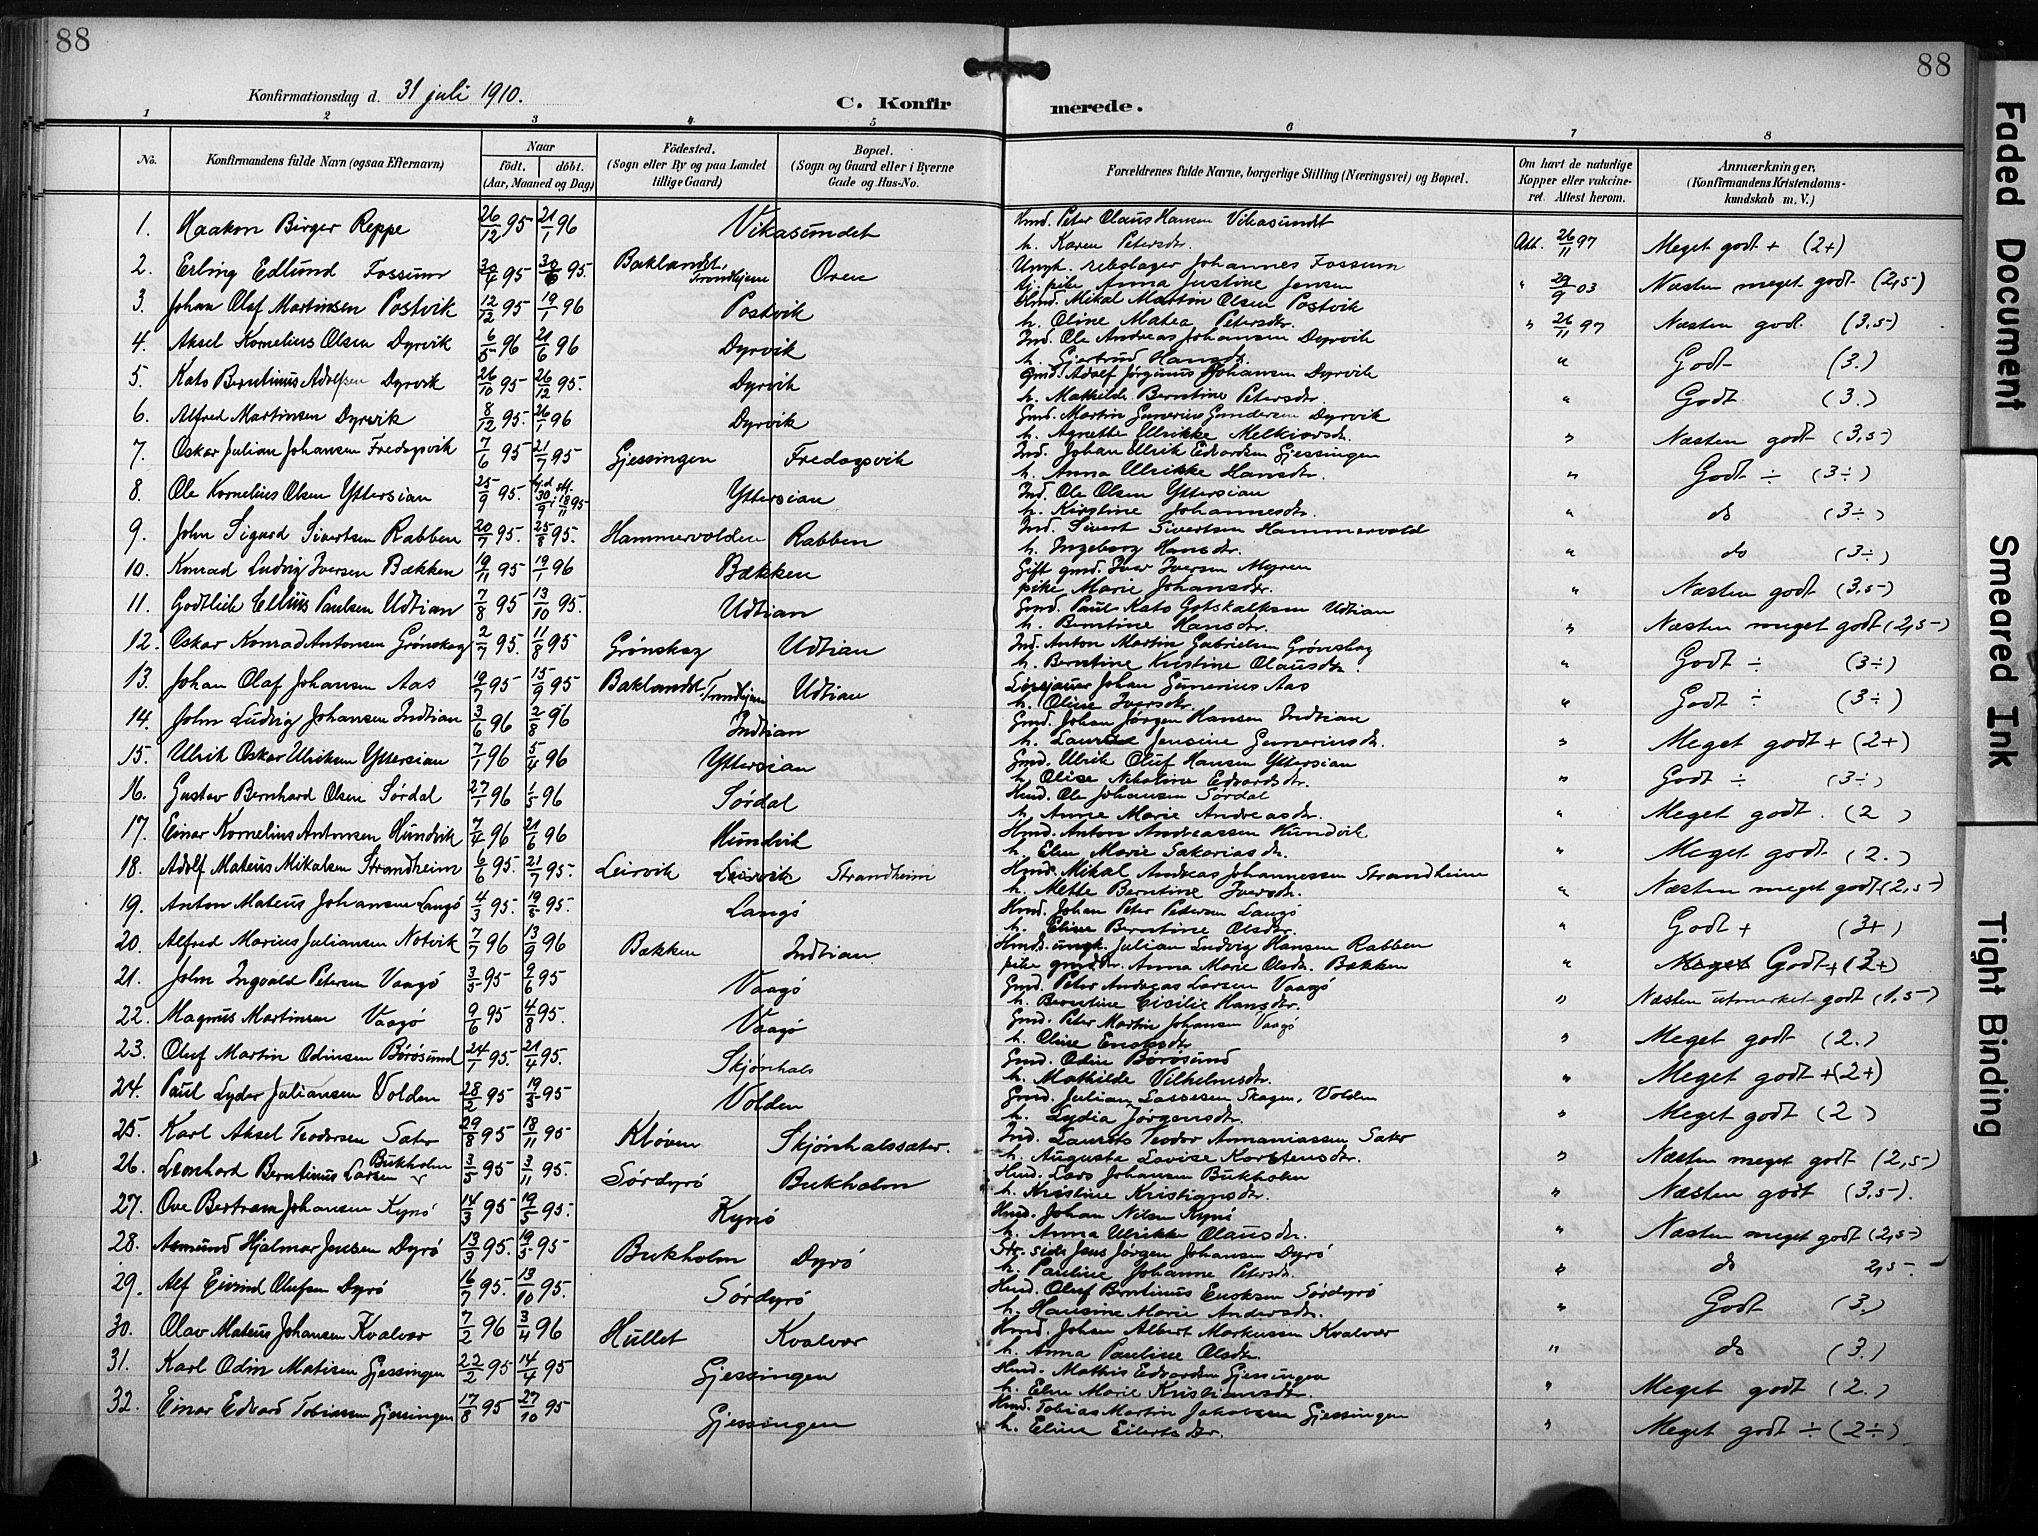 88
88
Konfirmationsdag d. 31 juli 1910.
C. Konfir merede.
1 2 3 4 5 6 7 8
No.
Konfirmandens fulde Navn (ogsaa Efternavn)
Naar
födt. döbt.
(Aar, Maaned og Dag)
Födested.
(Sogn eller By og paa Landet
tillige Gaard)
Bopæl.
(Sogn og Gaard eller i Byerne
Gade og Hus-No.
Forældrenes fulde Navne, borgerlige Stilling (Næringsvei) og Bopæl.
Om havt de naturlige
Kopper eller vakcine-
ret. Attest herom.
Anmærkninger.
(Konfirmandens Kristendoms-
kundskab m. V.)
1. Haakon Birger Reppe 26/12 95 21/1 96 Vikasundet Hmd. Peter Olaus Hansen Vikasundt
h. Karen Petersdr. Att. 26/11 97 Meget godt + (2+)
2. Erling Edlund Fossum 30/4 95 30/6 95. Baklandet, Trondhjem Oren Ungk. rebslager Johannes Fossum
pike Anna Justine Jensen " 29/9 03 Næsten meget godt (2,5)
3. Johan Olaf Martinsen Postvik 12/12 95 19/1 96 Postvik Hmd. Mikal Martin Olsen Postvik
h. Oline Matea Petersdr. " 26/11 97 Næsten godt. (3,5)
4. Aksel Kornelius Olsen Dyrvik 6/5 96 21/6 96 Dyrvik Ind. Ole Andreas Johansen Dyrvik
h. Gjertrud Hansdr. " Godt (3.)
5. Kato Berntinus Adolfsen Dyrvik 26/10 95 26/12 95. Dyrvik Gmd. Adolf Jørginus Johansen Dyrvik
h. Mathilde Berntine Petersdr. " Godt (3.)
6. Alfred Martinsen Dyrvik 8/12 95. 26/1 96 Dyrvik Gmd. Martin Gunerius Gundersen Dyrvik
h. Agnette Ulrikke Melkiorsdr. " Næsten godt (3,5)
7. Oskar Julian Johansen Fredagsvik 7/6 95 21/7 95 Gjessingen Fredagsvik Ind. Johan Ulrik Edvardsen Gjessingen
h. Anna Ulrikke Hansdr. " Godt ÷ (3÷)
8. Ole Kornelius Olsen Yttersian 25/9 95. 30/9 Yttersian Ind. Ole Olsen Yttersian
h. Kirstine Johannesdr. " do (3÷)
9. John Sigurd Sivertsen Rabben 20/7 95. 25/8 95. Hammervolden Rabben Ind. Sivert Sivertsen Hammervold
h. Ingeborg Hansdr. " do (3÷)
10. Konrad Ludvig Iversen Bækken 19/11 95 19/1 96 Bækken Gift gmd. Iver Iversen Myren
pike Marie Johansdr. " Næsten godt (3,5)
11. Godtlieb Ellius Paulsen Udtian 7/8 95 13/10 95. Udtian Gmd. Paul Kato Gotskalksen Udtian
h. Berntine Hansdr. " Næsten meget godt (2,5)
12. Oskar Konrad Antonsen Grønskag 2/7 95. 11/8 95 Grønskag Udtian Ind. Anton Martin Gabrielsen Grønskag
h. Berntine Kristine Olausdr. " Godt ÷ (3÷)
13. Johan Olaf Johansen Aas 19/7 95 15/9 95 Baklandet, Trondhjem Udtian Johan Gunerius Aas
h. Oline Iversdr. " Godt ÷ (3÷)
14. John Ludvig Johansen Indtian 3/6 96 2/8 96 Indtian Gmd. Johan Jørgen Hansen Indtian
h. Jensine Gunerinusdr. " Meget godt + (2+)
15. Ulrik Oskar Ulriksen Yttersian 7/1 96 5/4 96 Yttersian Gmd. Ulrik Oluf Hansen Yttersian
h. Olise Nikoline Edvardsdr. " Godt ÷ (3÷)
16. Gustav Bernhard Olsen Sørdal 27/1 96 1/5 96 Sørdal Hmd. Ole Johansen Sørdal
h. Anne Marie Andreasdr. " Meget godt. (2 )
17. Einar Kornelius Antonsen Hundvik 7/4 96 21/6 96 Hundvik Hmd. Anton Andreassen Hundvik
h. Elen Marie Sakariasdr. " Meget godt (2.)
18. Adolf Mateus Mikalsen Strandheim 6/6 95. 21/7 95. Leirvik Leirvik Strandheim Hmd. Mikal Andreas Johannessen Strandheim
h. Mette Berntine Iversdr. " Næsten meget godt (2,5)
19. Anton Mateus Johansen Langø 4/3 95. 19/5 95. Langø Hmd. Johan Peter Petersen Langø
h. Eline Berntine Olsdr. " Godt + (3+)
20. Alfred Marius Juliansen Notvik 7/7 96 13/9 96 Bækken Indtian Hmds. ungk. Julian Ludvig Hansen Rabben
pike gmdsdr. Anna Marie Olsdr. Bækken " Meget Godt + (3+)
21. John Ingvald Petersen Vaagø 3/5 95 9/6 95 Vaagø Gmd. Peter Andreas Larsen Vaagø
h. Berntine Cicilie Hansdr. " Næsten utmerket godt (1,5)
22. Magnus Martinsen Vaagø 9/6 95 4/8 95. Vaagø Gmd. Peter Martin Johansen Vaagø
h. Oline Enoksdr " Meget godt (2.)
23. Oluf Martin Odinsen Børøsund 24/1 95. 21/4 95. Skjønhals Gmd. Odin Børøsund
h. Mathilde Vilhelmsdr. " Meget godt + (2+)
24. Paul Lyder Juliansen Volden 28/2 95 19/3 95 Volden Gmd. Julian Lassesen Skagen, Volden
h. Lydia Jørgensdr. " Meget godt (2 )
25. Karl Aksel Teodorsen Sater 29/8 95 18/11 95 Kløven Skjønhalssater. Ind. Laurits Teodor Annaniassen Sater
h. Augusta Lovise Karstensdr. " Næsten meget godt (2,5)
26. Leonhard Berntinus Larsen Bukholm 3/5 95 3/11 95. Sørdyrø Bukholm Hmd. Lars Johansen Bukholm
h. Kristine Kristiansdr. " Næsten godt (3,5).
27. Ove Bertram Johansen Kynø 14/3 95 19/5 95. Kynø Hmd. Johan Nilsen Kynø
h. Anna Ulrikke Olausdr. " Næsten meget godt (2,5)
28. Asmund Hjalmar Jensen Dyrø 13/3 95. 19/5 95 Bukholm Dyrø Str.sidr Jens Jørgen Johansen Dyrø
h. Pauline Johanne Petersdr. " do 2,5.
29. Alf Eivind Olufsen Dyrø 16/7 95. 13/10 95. Sørdyrø Hmd. Oluf Berntinus Enoksen Sørdyrø
h. Hansine Marie Andersdr. " Godt (3.)
30. Olav Mateus Johansen Kvalvær 7/2 96 3/4 96 Hullet Kvalvær Hmd. Johan Albert Markussen Kvalvær
h. Anna Pauline Olsdr. " do (3.)
31. Karl Odin Matisen Gjessingen 22/2 95 14/4 95 Gjessingen Hmd. Mathis Edvardsen Gjessingen
h. Elen Marie Kristiansdr. " Meget godt (2.)
32. Einar Edvard Tobiassen Gjessingen 17/8 95 27/10 95 Gjessingen Hmd. Tobias Martin Jakobsen Gjessingen
h. Eline Eilertsdr. " Meget godt ÷ (2÷)
Faded Document
Smeared Ink
Tight Binding